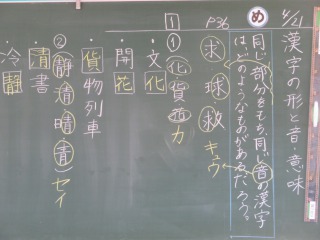 4/21 漢字の形と音・意味
め 同じ部分をもち、同じ音の漢字
は、どのようなものがあるだろう。
P36
求 球 救 キュウ
1
① 化 貨 花 カ
・文化
・開花
・貨物列車
② 静 清 晴 青 セイ
・清書
・冷静